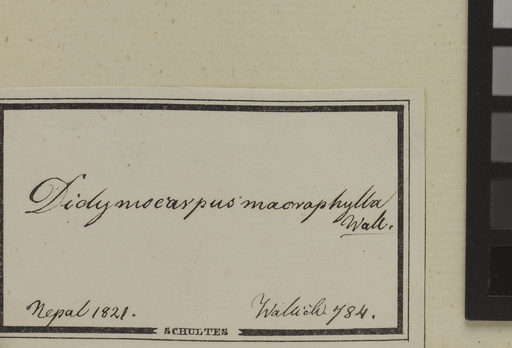 Didymocarpus macrophylla
Wall.
Nepal 1821.
Wallich. 784.
SCHULTES